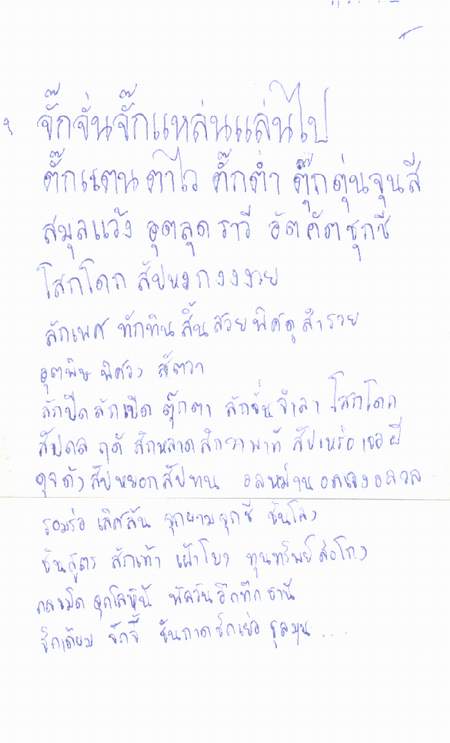 จั๊กจั่นจั๊กแหล่นแล่นไป
ตั๊กแตน ตาไว ตั๊กต่ำ ตุ๊กตุ่นจุนสี
สมุลแว้ง อุตลุด ราวี อัตคัตชุกชี
โสกโดก สัปหงกงงงวย
ลักเพศ ทักทิน สิ้นสวย พิศดูสำรวย
อุตพิษ พิศวง สัตวา
ลักปิดลักเปิด ตุ๊กตา ลักจั่น จำลา โสกโดก
สัปดล ฤดี สักหลาด สักวา พาที สัปเหร่อ เจอผี
ดุจดัง สัปหยอก สัปทน อลหม่าน
รอมร่อ เลิศล้น ชุกชี
ขันสูตร สักเท้า เฝ้าโยง ทุนทรัพย์ ฉ้อโกง
พัลวัน อึกทึก ธานี